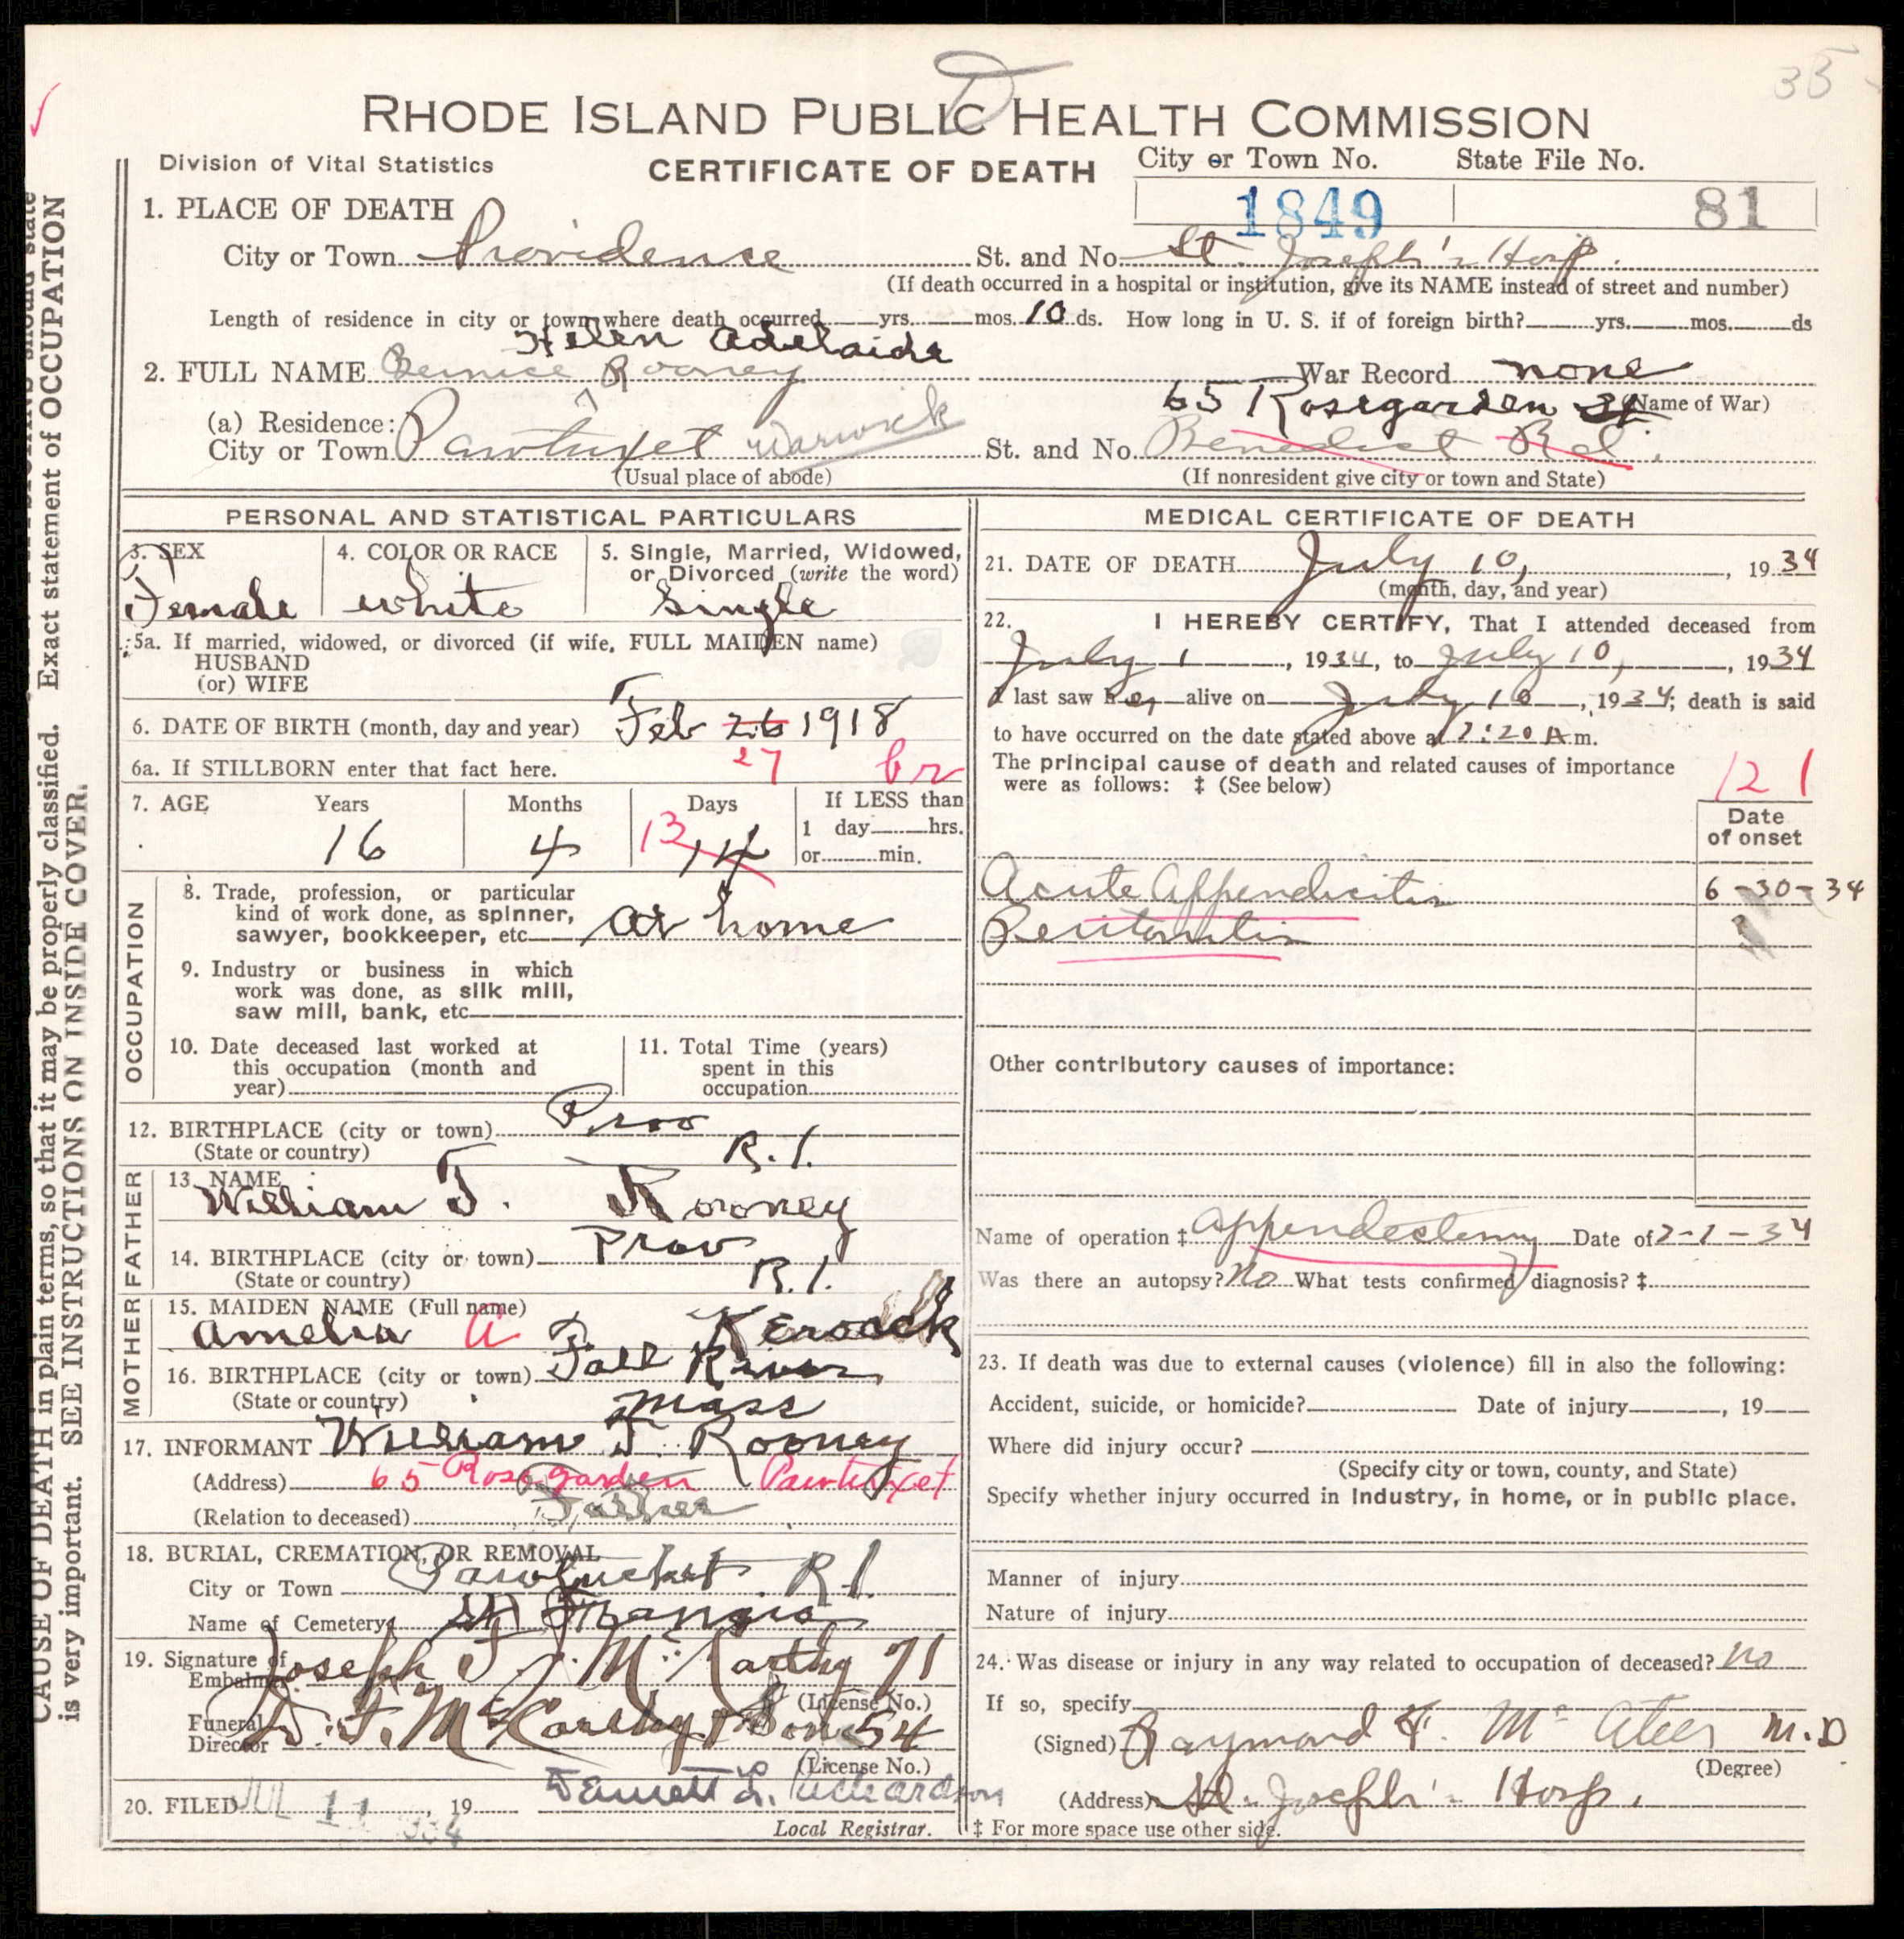 35
D
RHODE ISLAND PUBLIC HEALTH COMMISSION
Division of Vital Statistics
CERTIFICATE OF DEATH
City or Town No. State File No.
1849 81
1. PLACE OF DEATH
City or Town Providence St. and No St. Joseph's Hosp.
(If death occurred in a hospital or institution, give its NAME instead of street and number)
Length of residence in city or town where death occurred yrs. mos. 10 ds. How long in U. S. if of foreign birth? yrs. mos. ds
Helen Adelaide
2. FULL NAME Bernice Rooney War Record none
(Name of War)
65 Rosegarden St
(a) Residence:
City or Town Pawtuxet Warwick St. and No. Benedict Rd.
(Usual place of abode) (If nonresident give city or town and State)
PERSONAL AND STATISTICAL PARTICULARS
3. SEX 4. COLOR OR RACE 5. Single, Married, Widowed,
or Divorced (write the word)
Female white Single
5a. If married, widowed, or divorced (if wife, FULL MAIDEN name)
HUSBAND
(or) WIFE
6. DATE OF BIRTH (month, day and year) Feb 26 1918
27 br
6a. If STILLBORN enter that fact here.
7. AGE Years Months Days If LESS than
1 day hrs.
or min.
16 4 13 14
OCCUPATION
8. Trade, profession, or particular
kind of work done, as spinner,
sawyer, bookkeeper, etc at home
9. Industry or business in which
work was done, as silk mill,
saw mill, bank, etc
10. Date deceased last worked at
this occupation (month and
year)
11. Total Time (years)
spent in this
occupation
12. BIRTHPLACE (city or town) Prov
(State or country) R.I.
FATHER
13. NAME
William T. Rooney
14. BIRTHPLACE (city or town) Prov
(State or country) R.I.
MOTHER
15. MAIDEN NAME (Full name)
Amelia A
16. BIRTHPLACE (city or town) Fall River
(State or country) Mass
17. INFORMANT William T. Rooney
(Address) 65 Rosegarden Pawtuxet
(Relation to deceased) Father
18. BURIAL, CREMATION, OR REMOVAL
City or Town Pawtucket R.I.
Name of Cemetery St Francis
19. Signature of
Embalmer Joseph F. J. McCarthy 71
(License No.)
Funeral
Director D. F. McCarthy & Sons 54
(License No.)
20. FILED JUL 11 1934, 19 L. Richardson
Local Registrar.
MEDICAL CERTIFICATE OF DEATH
21. DATE OF DEATH July 10, , 1934
(month, day, and year)
22. I HEREBY CERTIFY, That I attended deceased from
July 1, 1934, to July 10, , 1934
I last saw her alive on July 10, 1934; death is said
to have occurred on the date stated above at :20 A.m.
The principal cause of death and related causes of importance
were as follows: ‡ (See below)
121
Date
of onset
Acute Appendicitis 6-30-34
Peritonitis ?
Other contributory causes of importance:
Name of operation ‡ Appendectomy Date of 7-1-34
Was there an autopsy? No What tests confirmed diagnosis? ‡
23. If death was due to external causes (violence) fill in also the following:
Accident, suicide, or homicide? Date of injury , 19
Where did injury occur?
(Specify city or town, county, and State)
Specify whether injury occurred in industry, in home, or in public place.
Manner of injury
Nature of injury
24. Was disease or injury in any way related to occupation of deceased? No
If so, specify
(Signed) Raymond F. McAteer M.D
(Degree)
(Address) St. Joseph's Hosp.
‡ For more space use other side.
CAUSE OF DEATH in plain terms, so that it may be properly classified. Exact statement of OCCUPATION
is very important. SEE INSTRUCTIONS ON INSIDE COVER.